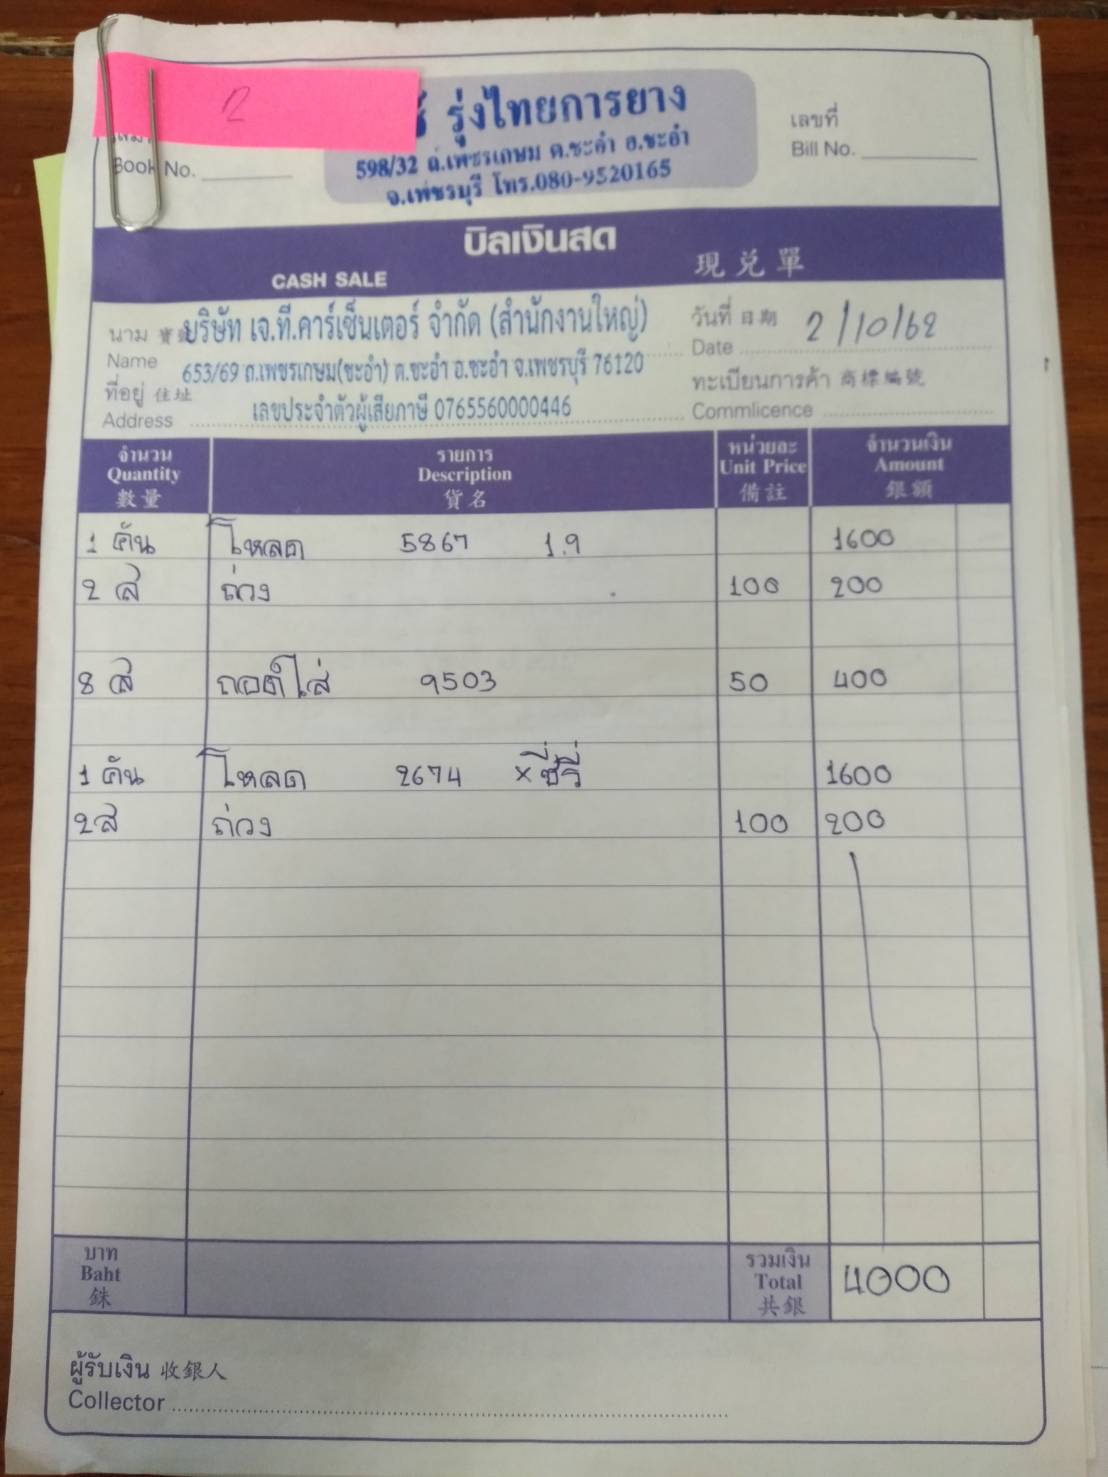 2
รุ่งไทยการยาง
598/32 ถ.เพชรเกษม ต.ชะอำ อ.ชะอำ
จ.เพชรบุรี โทร.080-9520165
Book No.
เลขที่
Bill No.
บิลเงินสด
CASH SALE
現兌單
นาม 寶號
Name
บริษัท เจ.ที.คาร์เซ็นเตอร์ จำกัด (สำนักงานใหญ่)
653/69 ถ.เพชรเกษม(ชะอำ) ต.ชะอำ อ.ชะอำ จ.เพชรบุรี 76120
เลขประจำตัวผู้เสียภาษี 0765560000446
ที่อยู่ 住址
Address
วันที่ 日期 2/10/62
Date
ทะเบียนการค้า 商標編號
Commlicence
จำนวน รายการ หน่วยละ จำนวนเงิน
Quantity Description Unit Price Amount
數量 貨名 備註 銀額
1 คัน โหลด 5867 1.9 1600
2 ล ถ่วง 100 200
8 ล ถอดใส่ 9503 50 400
1 คัน โหลด 2674 x ซีรี่ 1600
2 ล ถ่วง 100 200
บาท รวมเงิน
Baht Total 4000
銖 共銀
ผู้รับเงิน 收銀人
Collector